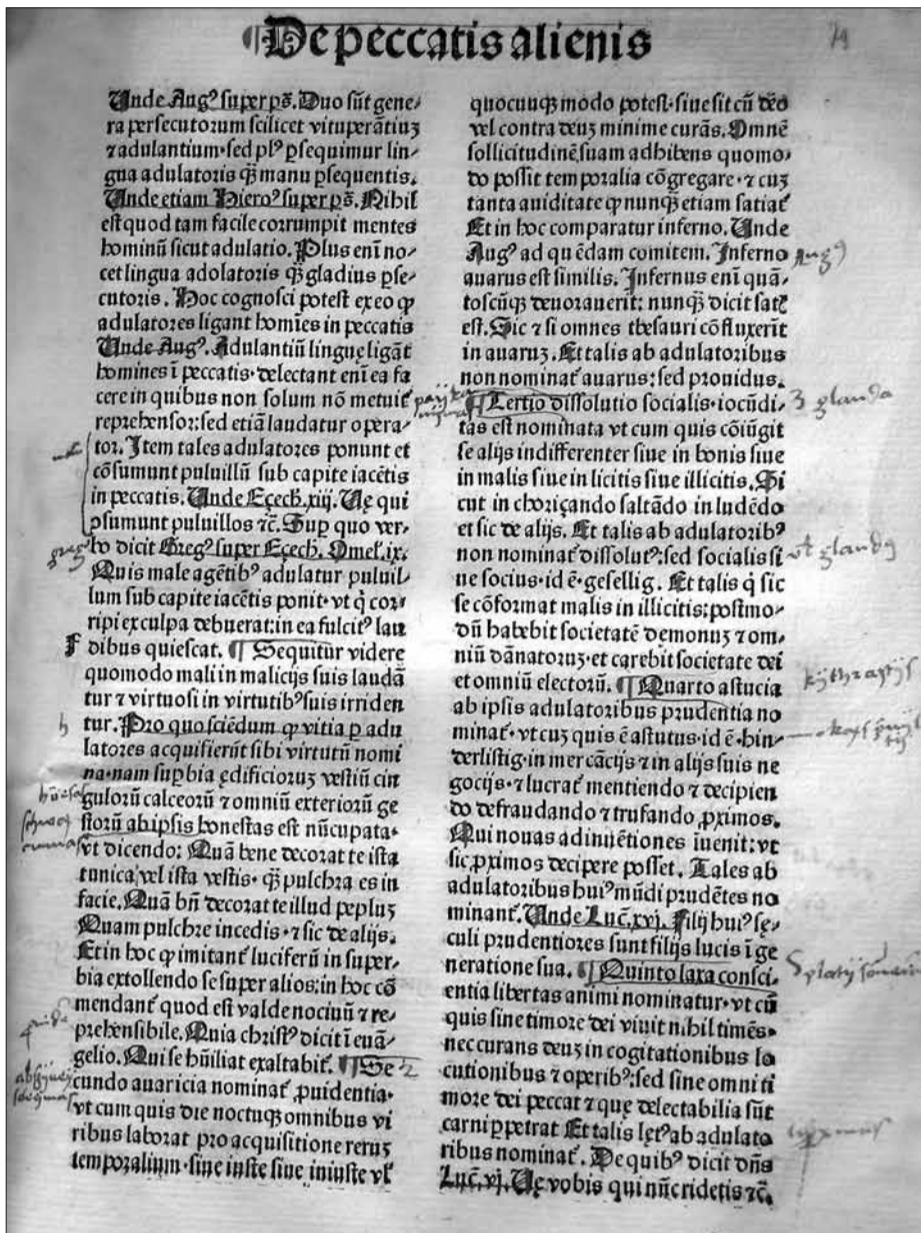 ¶De peccatis alienis
Unde Augꝰ super pṡ. Duo sūt gene⸗
ra persecutorum scilicet vituperātiuꝫ
⁊ adulantium·sed plꝰ ꝑsequimur lin⸗
gua adulatoris qꝫ̄ manu ꝑsequentis.
Unde etiam Hieroꝰ super pṡ. Nihil
est quod tam facile corrumpit mentes
hominū sicut adulatio. Plus enī no⸗
cet lingua adolatoris qꝫ̄ gladius ꝑse⸗
cutoris. Hoc cognosci potest ex eo ꝙ
adulatores ligant homīes in peccatis
Unde Augꝰ. Adulantiū linguę ligāt
homines ī peccatis·delectant enī ea fa
cere in quibus non solum nō metuit᷒
reprehensor:sed etiā laudatur opera⸗
tor. Item tales adulatores ponunt et
cōsumunt puluillū sub capite iacētis
in peccatis. Unde Eçech. xiij. Uę qui
ꝯsumunt puluillos ⁊c̄. Suꝑ quo ver⸗
bo dicit Gregꝰ super Eçech. Omel. ix.
Quis male agētibꝰ adulatur puluil⸗
lum sub capite iacētis ponit·vt q̇ cor⸗
ripi ex culpa debuerat:in ea fulcit᷒ lau
dibus quiescat. ¶ Sequitur videre
quomodo mali in malicijs suis laudā
tur ⁊ virtuosi in virtutibꝰ suis irriden
tur. Pro quo sciēdum ꝙ vitia ꝑ adu
latores acquisierūt sibi virtutū nomi
na·nam suꝑbia ędificioruꝫ vestiū cin
gulorū calceorū ⁊ omniū exteriorū ge
storū ab ipsis honestas est nūcupata·
vt dicendo: Quā bene decorat te ista
tunica vel ista vestis·qꝫ̄ pulchra es in
facie. Quā bn̄ decorat te illud pepluꝫ
Quam pulchre incedis·⁊ sic de alijs.
Et in hoc ꝙ imitant᷒ luciferū in super⸗
bia extollendo se super alios:in hoc cō
mendant᷒ quod est valde nociuū ⁊ re⸗
prehensibile. Quia christꝰ dicit ī euā⸗
gelio. Qui se hūiliat exaltabit᷒. ¶ Se
cundo auaricia nominat᷒ ꝓuidentia·
vt cum quis die noctuqꝫ omnibus vi
ribus laborat pro acquisitione reruꝫ
temporalium·siue iuste siue iniuste vl᷒
quocuuqꝫ modo potest·siue sit cū deo
vel contra deuꝫ minime curās. Omnē
sollicitudinē suam adhibens quomo⸗
do possit temporalia cōgregare·⁊ cuꝫ
tanta auiditate ꝙ nunqꝫ̄ etiam satiat᷒
Et in hoc comparatur inferno. Unde
Augꝰ ad quēdam comitem. Inferno
auarus est similis. Infernus enī quā⸗
toscūqꝫ deuorauerit: nunqꝫ̄ dicit sat᷒
est. Sic ⁊ si omnes thesauri cōfluxerīt
in auaruꝫ. Et talis ab adulatoribus
non nominat᷒ auarus:sed prouidus.
¶ Tertio dissolutio socialis·iocūdi⸗
tas est nominata vt cum quis cōiūgit
se alijs indifferenter siue in bonis siue
in malis siue in licitis siue illicitis. Si
cut in choriçando saltādo in ludēdo
et sic de alijs. Et talis ab adulatoribꝰ
non nominat᷒ dissolutꝰ:sed socialis si
ue socius·id ē·gesellig. Et talis q̇ sic
se cōformat malis in illicitis:postmo⸗
dū habebit societatē demonuꝫ ⁊ om⸗
niū dānatoruꝫ·et carebit societate dei
et omniū electorū. ¶ Quarto astucia
ab ipsis adulatoribus prudentia no
minat᷒·vt cuꝫ quis ē astutus·id ē·hin⸗
derlistig·in mercācijs ⁊ in alijs suis ne
gocijs·⁊ lucrat᷒ mentiendo ⁊ decipien
do defraudando ⁊ trufando ꝓximos.
Qui nouas adinuētiones iuenit:vt
sic ꝓximos decipere posset. Tales ab
adulatoribus huiꝰ mūdi prudētes no
minant᷒. Unde Luc̄. xvj. Filij huiꝰ sę⸗
culi prudentiores sunt filijs lucis ī ge
neratione sua. ¶ Quinto laxa consci⸗
entia libertas animi nominatur·vt cū
quis sine timore dei viuit nihil timēs·
nec curans deuꝫ in cogitationibus lo
cutionibus ⁊ operibꝰ:sed sine omni ti
more dei peccat ⁊ quę delectabilia sūt
carni ꝑpetrat Et talis lętꝰ ab adulato
ribus nominat᷒. De quibꝰ dicit dn̄s
Luc̄. vj. Uę vobis qui nūc ridetis ⁊c̄.
Augꝰ
3 glanda
gregꝰ
f
h